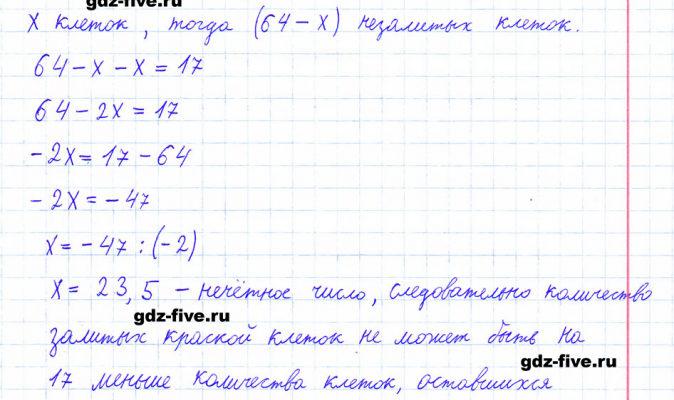 gdz-five.ru
х клеток, тогда (64 - х) незалитых клеток.
64 - х - х = 17
64 - 2х = 17
- 2х = 17 - 64
- 2х = - 47
х = - 47 : (-2)
х = 23,5 - нечётное число, следовательно количество
gdz-five.ru
залитых краской клеток не может быть на
gdz-five.ru
17 меньше количества клеток, оставшихся